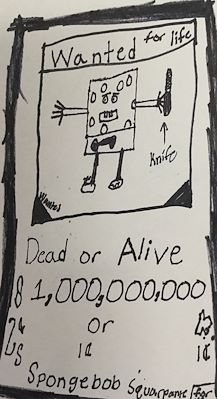 Wanted for life
knife
Wanted
Dead or Alive
1,000,000,000
or
1¢ 1¢
Spongebob Squarpants for